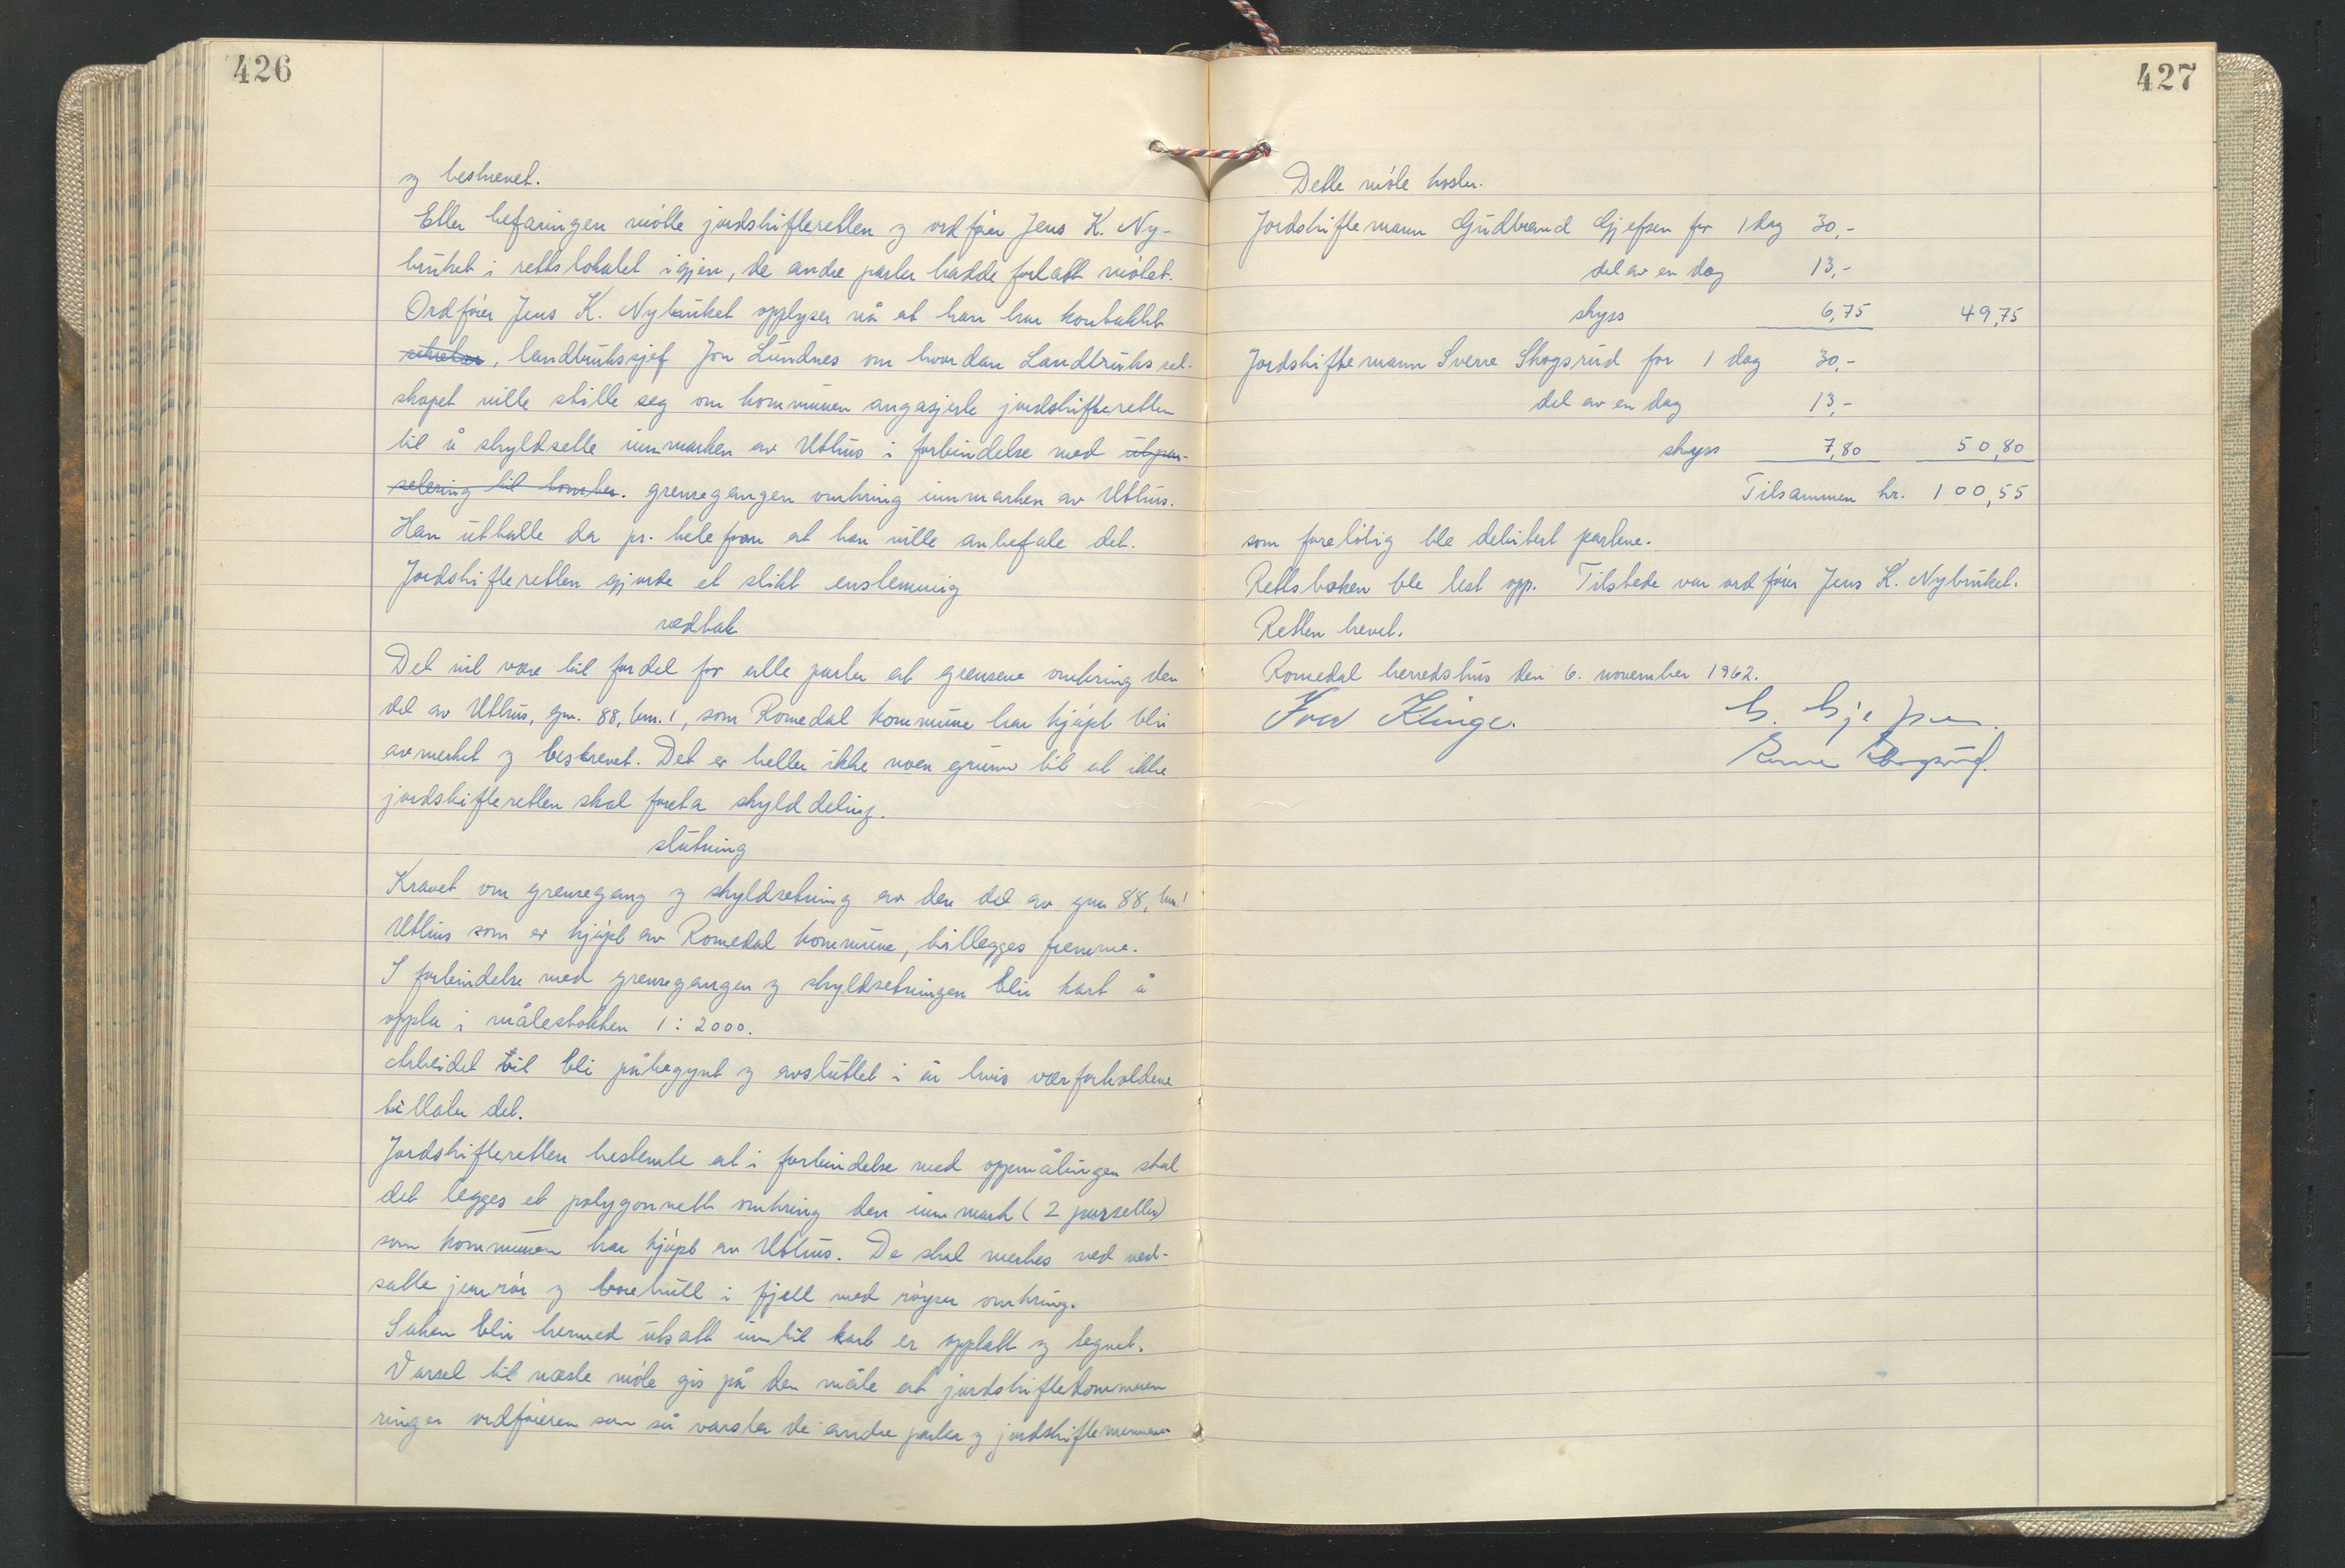 426
og beskrevet.
Etter befaringen møtte jordskifteretten og ordfører Jens K. Ny-
bruket i rettslokalet igjen, de andre parter hadde forlatt møtet.
Ordfører Jens K. Nybruket opplyser nå at han har kontaktet
landbrukssjef Jon Lundnes om hvordan Landbruks sel-
skapet ville stille seg om kommunen angasjerte jordskifteretten
til å skyldsette innmarken av Uthus i forbindelse med utpar-
selering til tomter. grensegangen omkring innmarken av Uthus.
Han uttalte da pr. telefon at han ville anbefale det.
Jordskifteretten gjorde et slikt enstemmig
vedtak
Det vil være til fordel for alle parter at grensene omkring den
del av Uthus, gnr. 88, bnr. 1, som Romedal kommune har kjøpt blir
avmerket og beskrevet. Det er heller ikke noen grunn til at ikke
jordskifteretten skal foreta skylddeling.
slutning
Kravet om grensegang og skyldsetning av den del av gnr 88, bnr. 1
Uthus som er kjøpt av Romedal kommune, tillegges fremme.
I forbindelse med grensegangen og skyldsetningen blir kart å
oppta i målestokken 1:2000.
Arbeidet vil bli påbegynt og avsluttet i år hvis værforholdene
tillater det.
Jordskifteretten bestemte at i forbindelse med oppmålingen skal
det legges et polygonnett omkring den innmark (2 parseller)
som kommunen har kjøpt av Uthus. De skal merkes med ned-
satte jernrør og borehull i fjell med røyser omkring.
Saken blir hermed utsatt inntil kart er opptatt og tegnet.
Varsel til næste møte gis på den måte at jordskiftedommeren
ringer ordføreren som så varsler de andre parter og jordskiftemennene
427
Dette møte koster.
Jordskiftemann Gudbrand Gjefsen for 1 dag 30,-
del av en dag 13,-
skyss 6,75 49,75
Jordskiftemann Sverre Skogsrud for 1 dag 30,-
del av en dag 13,-
skyss 7,80 50,80
Tilsammen kr. 100,55
som foreløbig ble debitert partene.
Rettsboken ble lest opp. Tilstede var ordfører Jens K. Nybruket.
Retten hevet.
Romedal herredshus den 6. november 1962.
Klinge. G. Gjefsen.
Sverre Skogsrud.